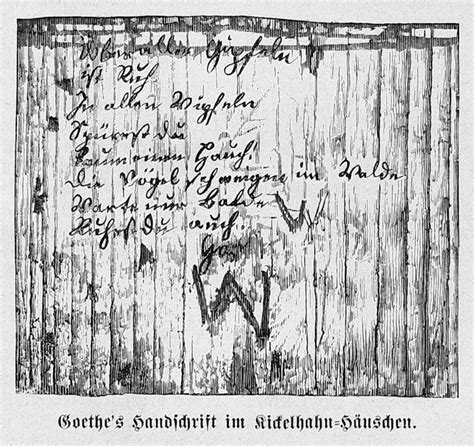 Über allen Gipfeln
ist Ruh
In allen Wipfeln
Spürest du
Kaum einen Hauch!
Die Vögel schweigen im Walde
Warte nur Balde W
Ruhest du auch.
W
Goethe's Handschrift im Kickelhahn-Häuschen.